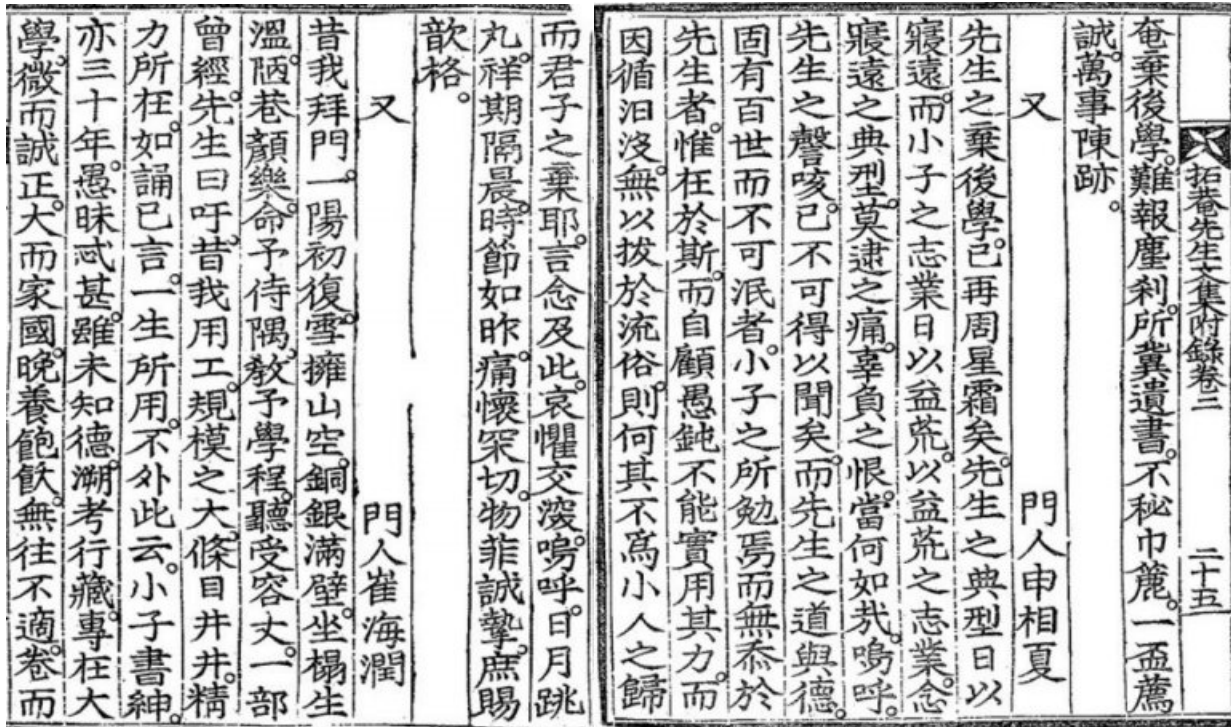 拓菴先生文集附錄卷三 二十五
奄棄後學。難報塵刹。所冀遺書。不秘巾簏。一盃薦
誠。萬事陳跡。
又 門人申相夏
先生之棄後學。已再周星霜矣。先生之典型日以
寢遠。而小子之志業日以益荒。以益荒之志業。念
寢遠之典型。莫逮之痛。辜負之恨。當何如哉。嗚呼。
先生之謦咳。已不可得以聞矣。而先生之道與德。
固有百世而不可泯者。小子之所勉焉而無忝於
先生者。惟在於斯。而自顧愚鈍不能實用其力。而
因循汩沒。無以拔於流俗。則何其不爲小人之歸
而君子之棄耶。言念及此。哀懼交深。嗚呼。日月跳
丸。祥期隔晨。時節如昨。痛懷罙切。物菲誠摯。庶賜
歆格。
又 門人崔海潤
昔我拜門。一陽初復。雪擁山空。銅銀滿壁。坐榻生
溫。陋巷顏樂。命予侍隅。敎予學程。聽受容丈。一部
曾經。先生曰吁。昔我用工。規模之大。條目井井。精
力所在。如誦已言。一生所用。不外此云。小子書紳。
亦三十年。愚昧忒甚。雖未知德。溯考行藏。專在大
學。微而誠正。大而家國。晩養飽飫。無往不適。卷而